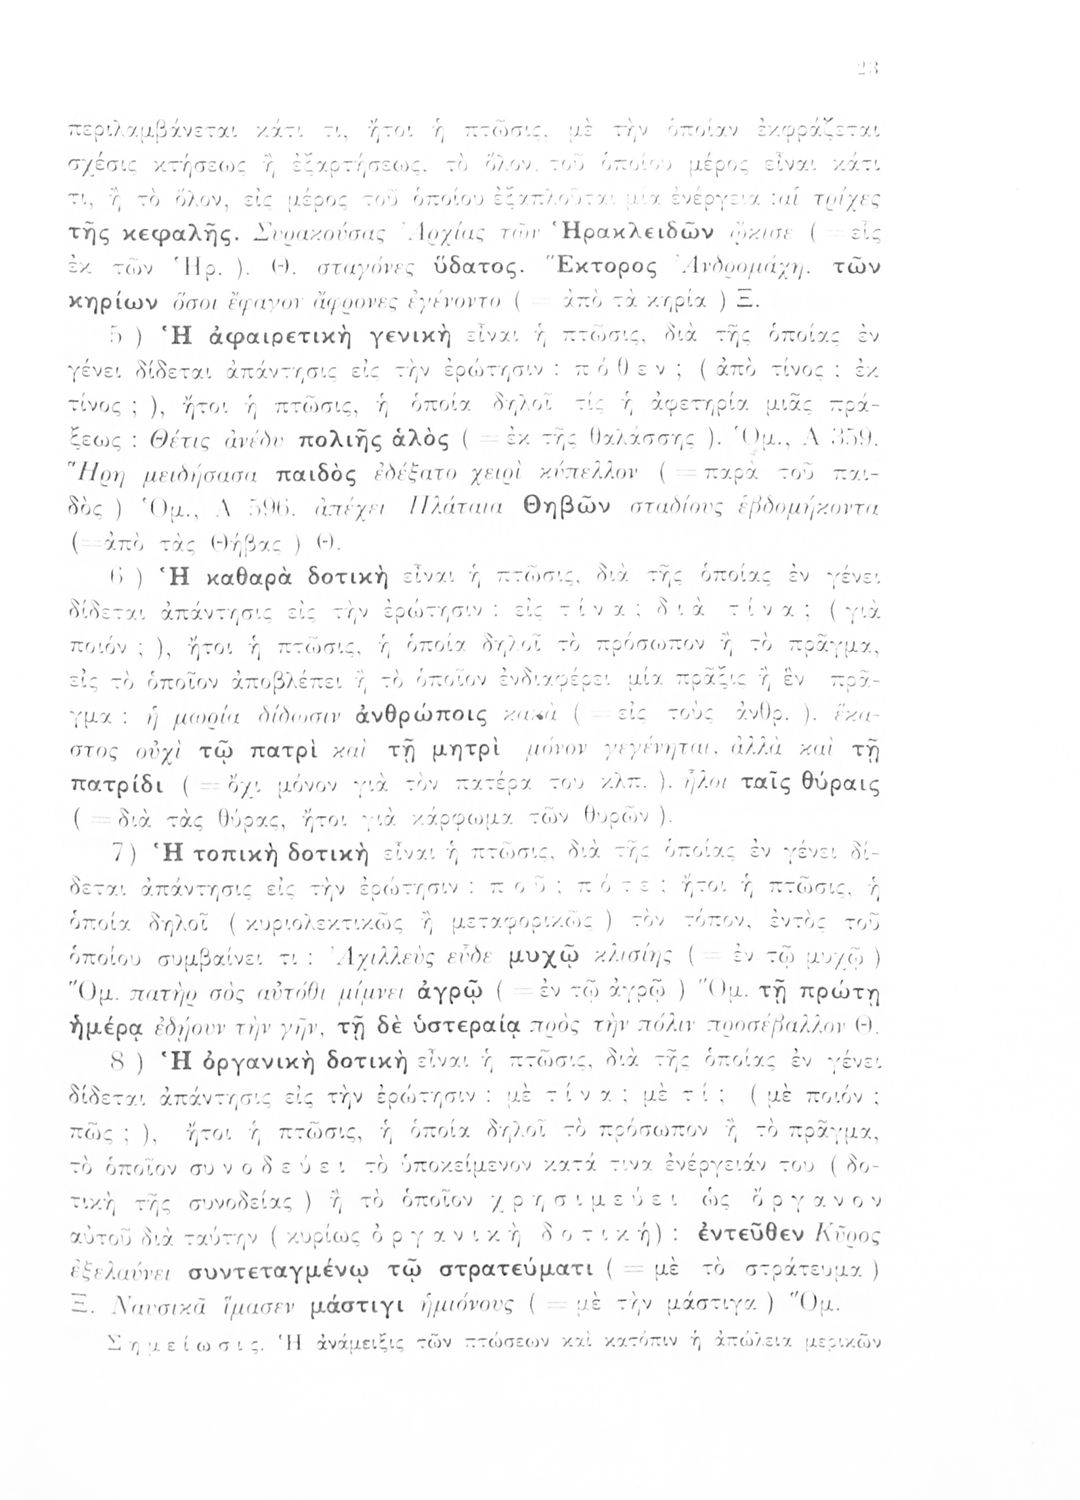 23
περιλαμβάνεται κάτι τι, ἤτοι ἡ πτῶσις, μὲ τὴν ὁποίαν ἐκφράζεται
σχέσις κτήσεως ἢ ἐξαρτήσεως, τὸ ὅλον, τοῦ ὁποίου μέρος εἶναι κάτι
τι, ἢ τὸ ὅλον, εἰς μέρος τοῦ ὁποίου ἐξαπλοῦται μία ἐνέργεια :αἱ τρίχες
τῆς κεφαλῆς. Συρακούσας Ἀρχίας τῶν Ἡρακλειδῶν ᾤκισε ( = εἷς
ἐκ τῶν Ἡρ. ). Θ. σταγόνες ὕδατος. Ἕκτορος Ἀνδρομάχη. τῶν
κηρίων ὅσοι ἔφαγον ἄφρονες ἐγένοντο ( = ἀπὸ τὰ κηρία ) Ξ.
5 ) Ἡ ἀφαιρετικὴ γενικὴ εἶναι ἡ πτῶσις, διὰ τῆς ὁποίας ἐν
γένει δίδεται ἀπάντησις εἰς τὴν ἐρώτησιν : πόθεν ; ( ἀπὸ τίνος ; ἐκ
τίνος ; ), ἤτοι ἡ πτῶσις, ἡ ὁποία δηλοῖ τίς ἡ ἀφετηρία μιᾶς πρά-
ξεως : Θέτις ἀνέδυ πολιῆς ἁλὸς ( = ἐκ τῆς θαλάσσης ). Ὁμ., Α 359.
Ἥρη μειδήσασα παιδὸς ἐδέξατο χειρὶ κύπελλον ( = παρὰ τοῦ παι-
δὸς ) Ὁμ., Α 596. ἀπέχει Πλάταια Θηβῶν σταδίους ἑβδομήκοντα
(=ἀπὸ τὰς Θήβας ) Θ.
6 ) Ἡ καθαρὰ δοτικὴ εἶναι ἡ πτῶσις, διὰ τῆς ὁποίας ἐν γένει
δίδεται ἀπάντησις εἰς τὴν ἐρώτησιν : εἰς τίνα ; διὰ τίνα ; ( γιὰ
ποιόν ; ), ἤτοι ἡ πτῶσις, ἡ ὁποία δηλοῖ τὸ πρόσωπον ἢ τὸ πρᾶγμα,
εἰς τὸ ὁποῖον ἀποβλέπει ἢ τὸ ὁποῖον ἐνδιαφέρει μία πρᾶξις ἢ ἓν πρᾶ-
γμα : ἡ μωρία δίδωσιν ἀνθρώποις κακὰ ( = εἰς τοὺς ἀνθρ. ). ἕκα-
στος οὐχὶ τῷ πατρὶ καὶ τῇ μητρὶ μόνον γεγένηται, ἀλλὰ καὶ τῇ
πατρίδι ( = ὄχι μόνον γιὰ τὸν πατέρα του κλπ. ). ἧλοι ταῖς θύραις
( = διὰ τὰς θύρας, ἤτοι γιὰ κάρφωμα τῶν θυρῶν ).
7) Ἡ τοπικὴ δοτικὴ εἶναι ἡ πτῶσις, διὰ τῆς ὁποίας ἐν γένει δί-
δεται ἀπάντησις εἰς τὴν ἐρώτησιν : ποῦ ; πότε ; ἤτοι ἡ πτῶσις, ἡ
ὁποία δηλοῖ ( κυριολεκτικῶς ἢ μεταφορικῶς ) τὸν τόπον, ἐντὸς τοῦ
ὁποίου συμβαίνει τι : Ἀχιλλεὺς εὗδε μυχῷ κλισίης ( = ἐν τῷ μυχῷ )
Ὅμ. πατὴρ σὸς αὐτόθι μίμνει ἀγρῷ ( = ἐν τῷ ἀγρῷ ) Ὅμ. τῇ πρώτῃ
ἡμέρᾳ ἐδῄουν τὴν γῆν, τῇ δὲ ὑστεραίᾳ πρὸς τὴν πόλιν προσέβαλλον Θ.
8 ) Ἡ ὀργανικὴ δοτικὴ εἶναι ἡ πτῶσις, διὰ τῆς ὁποίας ἐν γένει
δίδεται ἀπάντησις εἰς τὴν ἐρώτησιν : μὲ τίνα ; μὲ τί ; ( μὲ ποιόν ;
πῶς ; ), ἤτοι ἡ πτῶσις, ἡ ὁποία δηλοῖ τὸ πρόσωπον ἢ τὸ πρᾶγμα,
τὸ ὁποῖον συνοδεύει τὸ ὑποκείμενον κατά τινα ἐνέργειάν του ( δο-
τικὴ τῆς συνοδείας ) ἢ τὸ ὁποῖον χρησιμεύει ὡς ὄργανον
αὐτοῦ διὰ ταύτην ( κυρίως ὀργανικὴ δοτική) : ἐντεῦθεν Κῦρος
ἐξελαύνει συντεταγμένῳ τῷ στρατεύματι ( = μὲ τὸ στράτευμα )
Ξ. Ναυσικᾶ ἵμασεν μάστιγι ἡμιόνους ( = μὲ τὴν μάστιγα ) Ὅμ.
Σημείωσις. Ἡ ἀνάμειξις τῶν πτώσεων καὶ κατόπιν ἡ ἀπώλεια μερικῶν